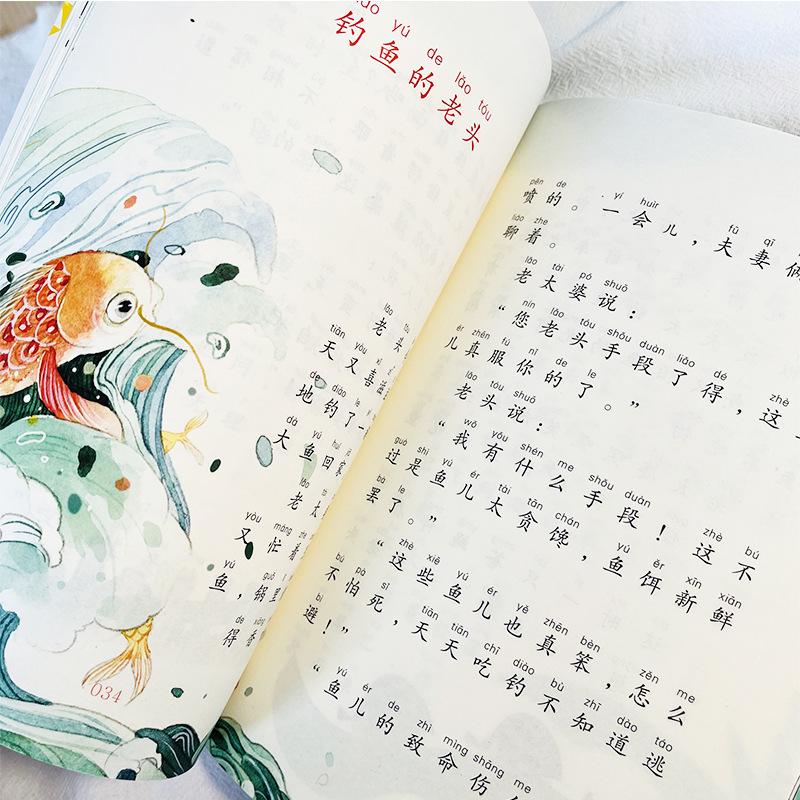 yú de lǎo tóu
钓鱼的老头
lǎo
老头
tiān yòu
天又喜滋
de diào le
地钓了一
dà yú huí
大鱼回家
lǎo
老太
yòu máng zhe
又忙着
yú guō lǐ
鱼，锅里
de
得香
034
pēn de yí huìr fū qī
喷的。一会儿，夫妻俩
liáo zhe
聊着。
lǎo tài pó shuō
老太婆说：
nín lǎo tóu shǒu duàn liǎo dé zhè
“您老头手段了得，这些
ér zhēn fú nǐ de le
儿真服你的了。”
lǎo tóu shuō
老头说：
wǒ yǒu shén me shǒu duàn zhè bú
“我有什么手段！这不
guò shì yú ér tài tān chán yú ěr xīn xiān
过是鱼儿太贪馋，鱼饵新鲜
bà le
罢了。”
zhè xiē yú ér yě zhēn bèn zěn me
“这些鱼儿也真笨，怎么
bú pà sǐ tiān tiān chī diào bù zhī dào táo
不怕死，天天吃钓不知道逃
bì
避！”
yú ér de zhì mìng shāng me
“鱼儿的致命伤